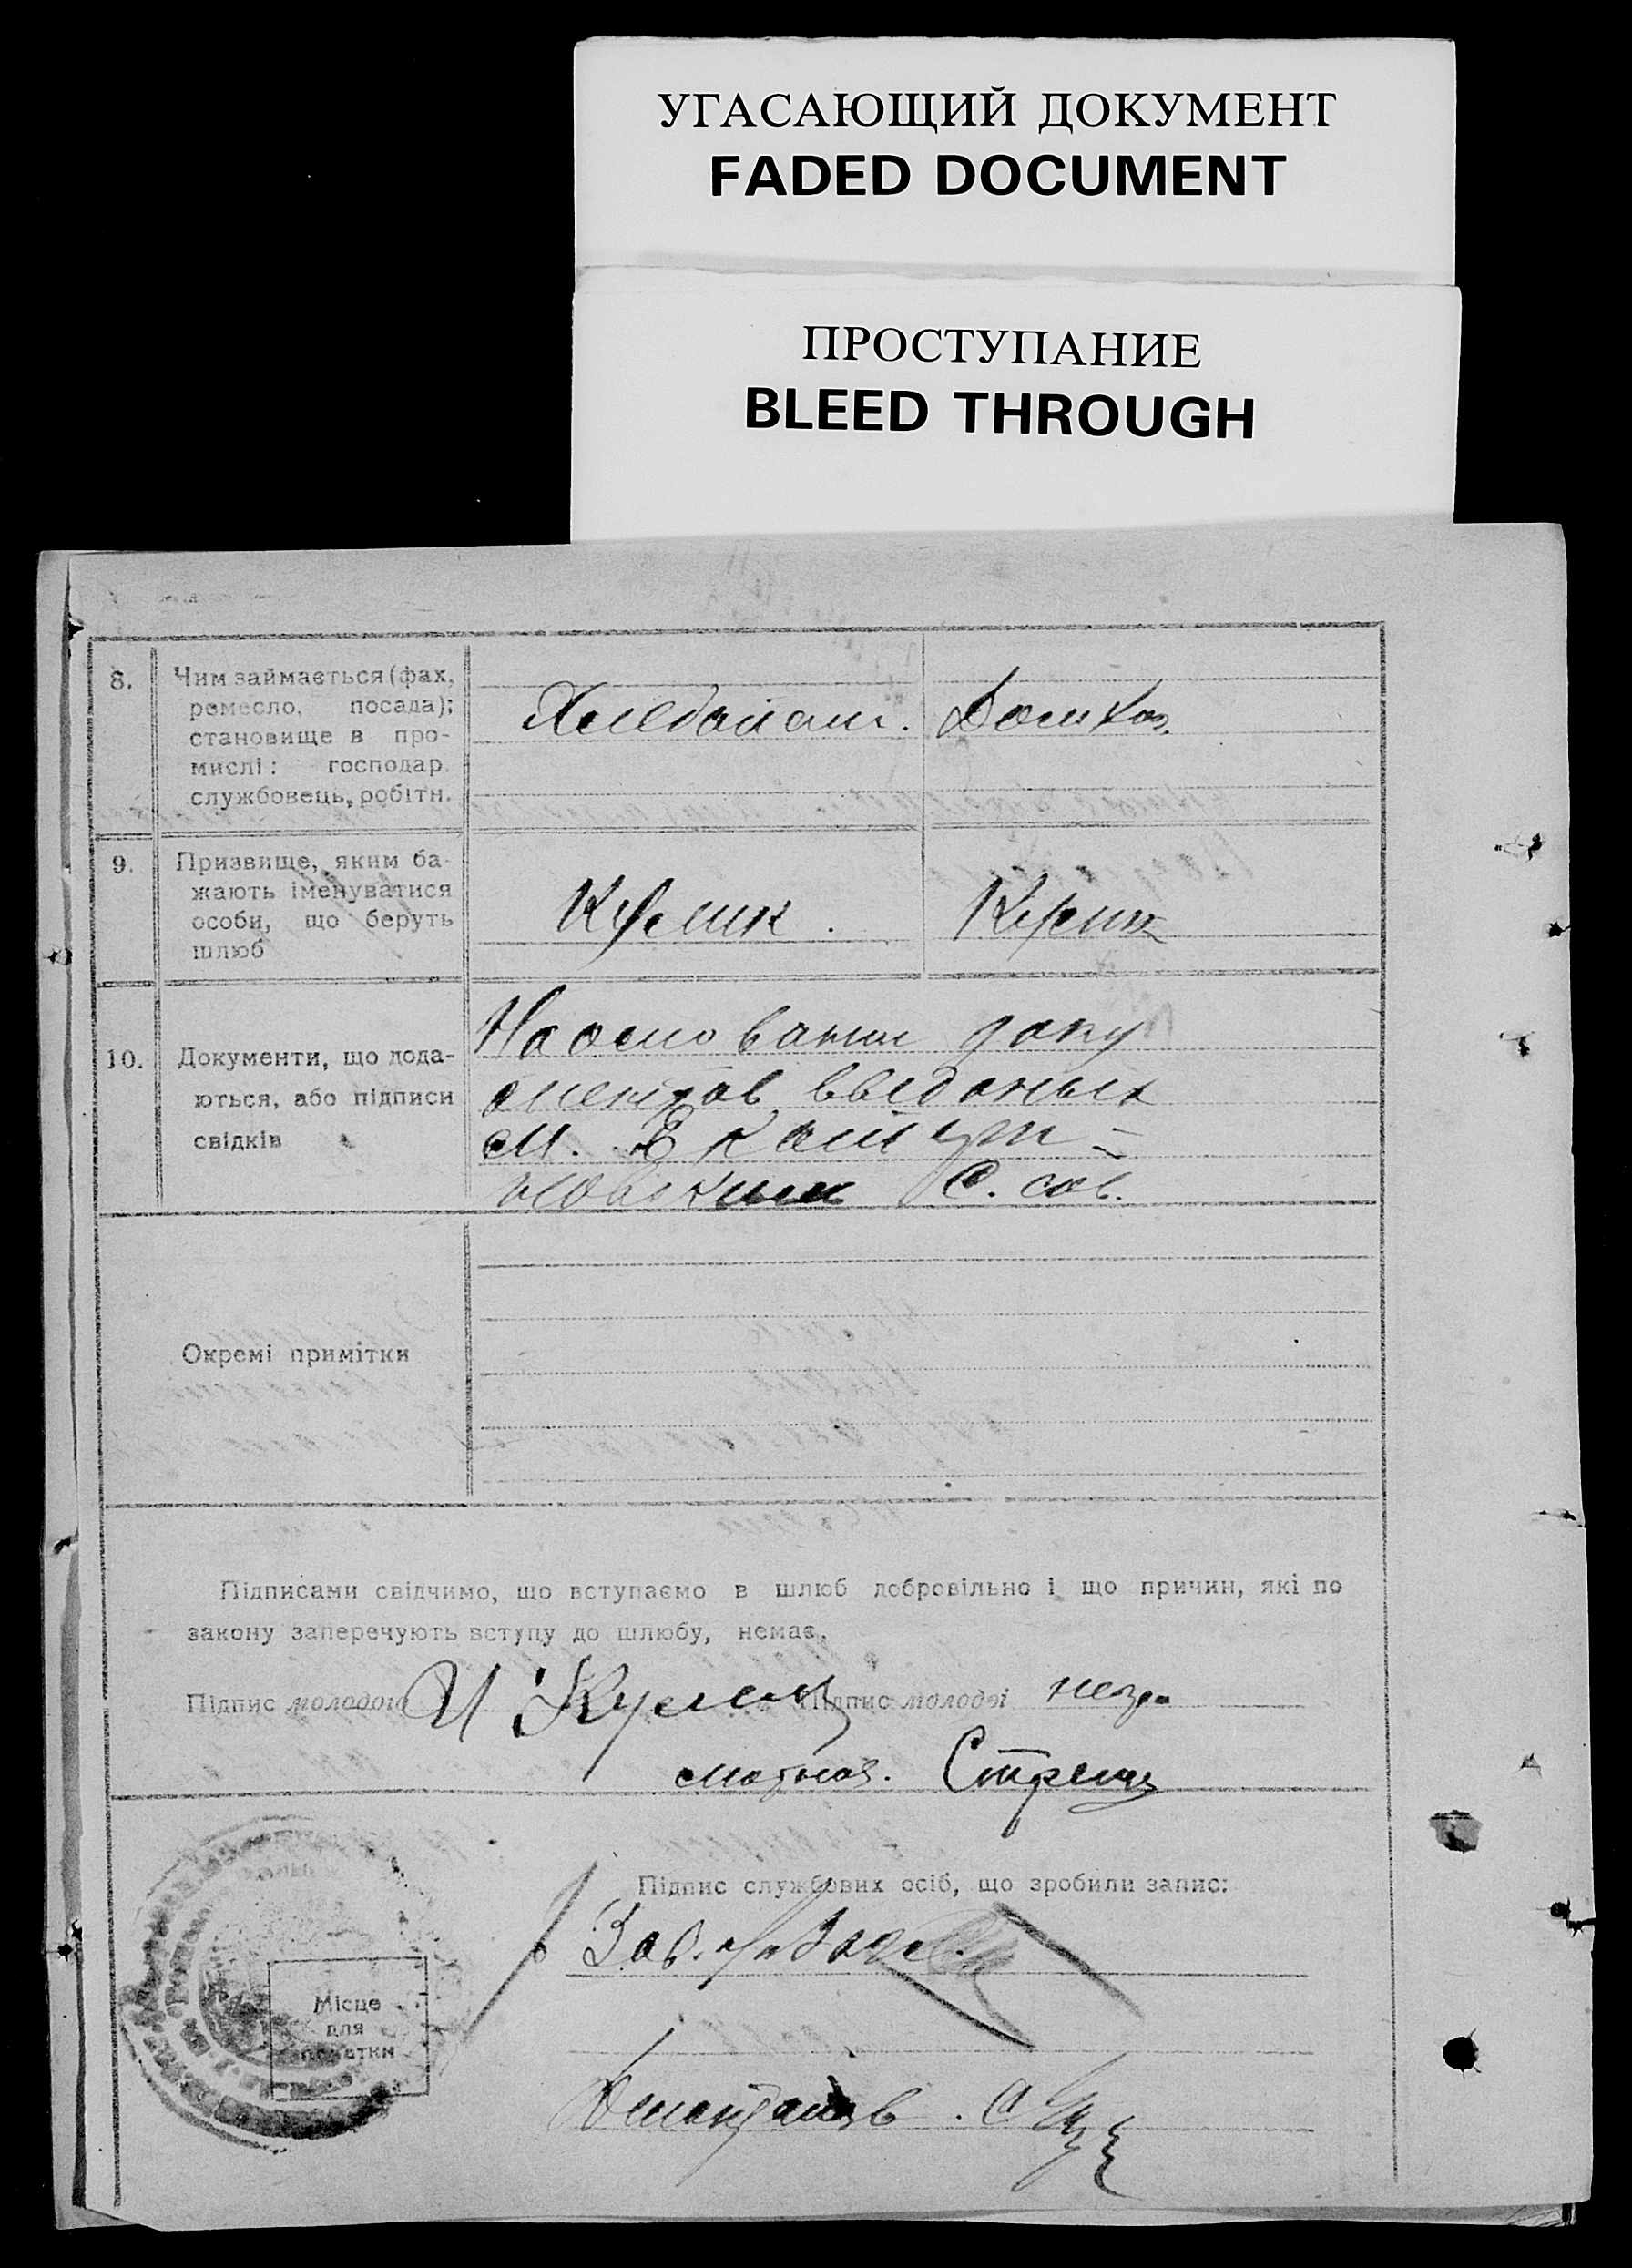 УГАСАЮЩИЙ ДОКУМЕНТ
FADED DOCUMENT
ПРОСТУПАНИЕ
BLEED THROUGH
8. Чим займається (фах,
ремесло, посада);
становище в про-
мислі: господар.
службовець, робітн.
Хлебопаш. Домхоз.
9. Призвище, яким ба-
жають іменуватися
особи, що беруть
шлюб
Кулик. Кулик
10. Документи, що дода-
ються, або підписи
свідків
На основании доку
ментов выданых
м. Екатери-
новским С. сов.
Окремі примітки
Підписами свідчимо, що вступаємо в шлюб добровільно і що причин, які по
закону заперечують вступу до шлюбу, немає.
Підпис молодого И Кулик Підпис молодої негра
мотная.
Підпис службових осіб, що зробили запис:
Зав.
Місце
для
печатки